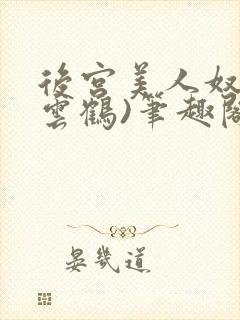 後宮美人奴
雲鶴)筆趣閣
晏幾道